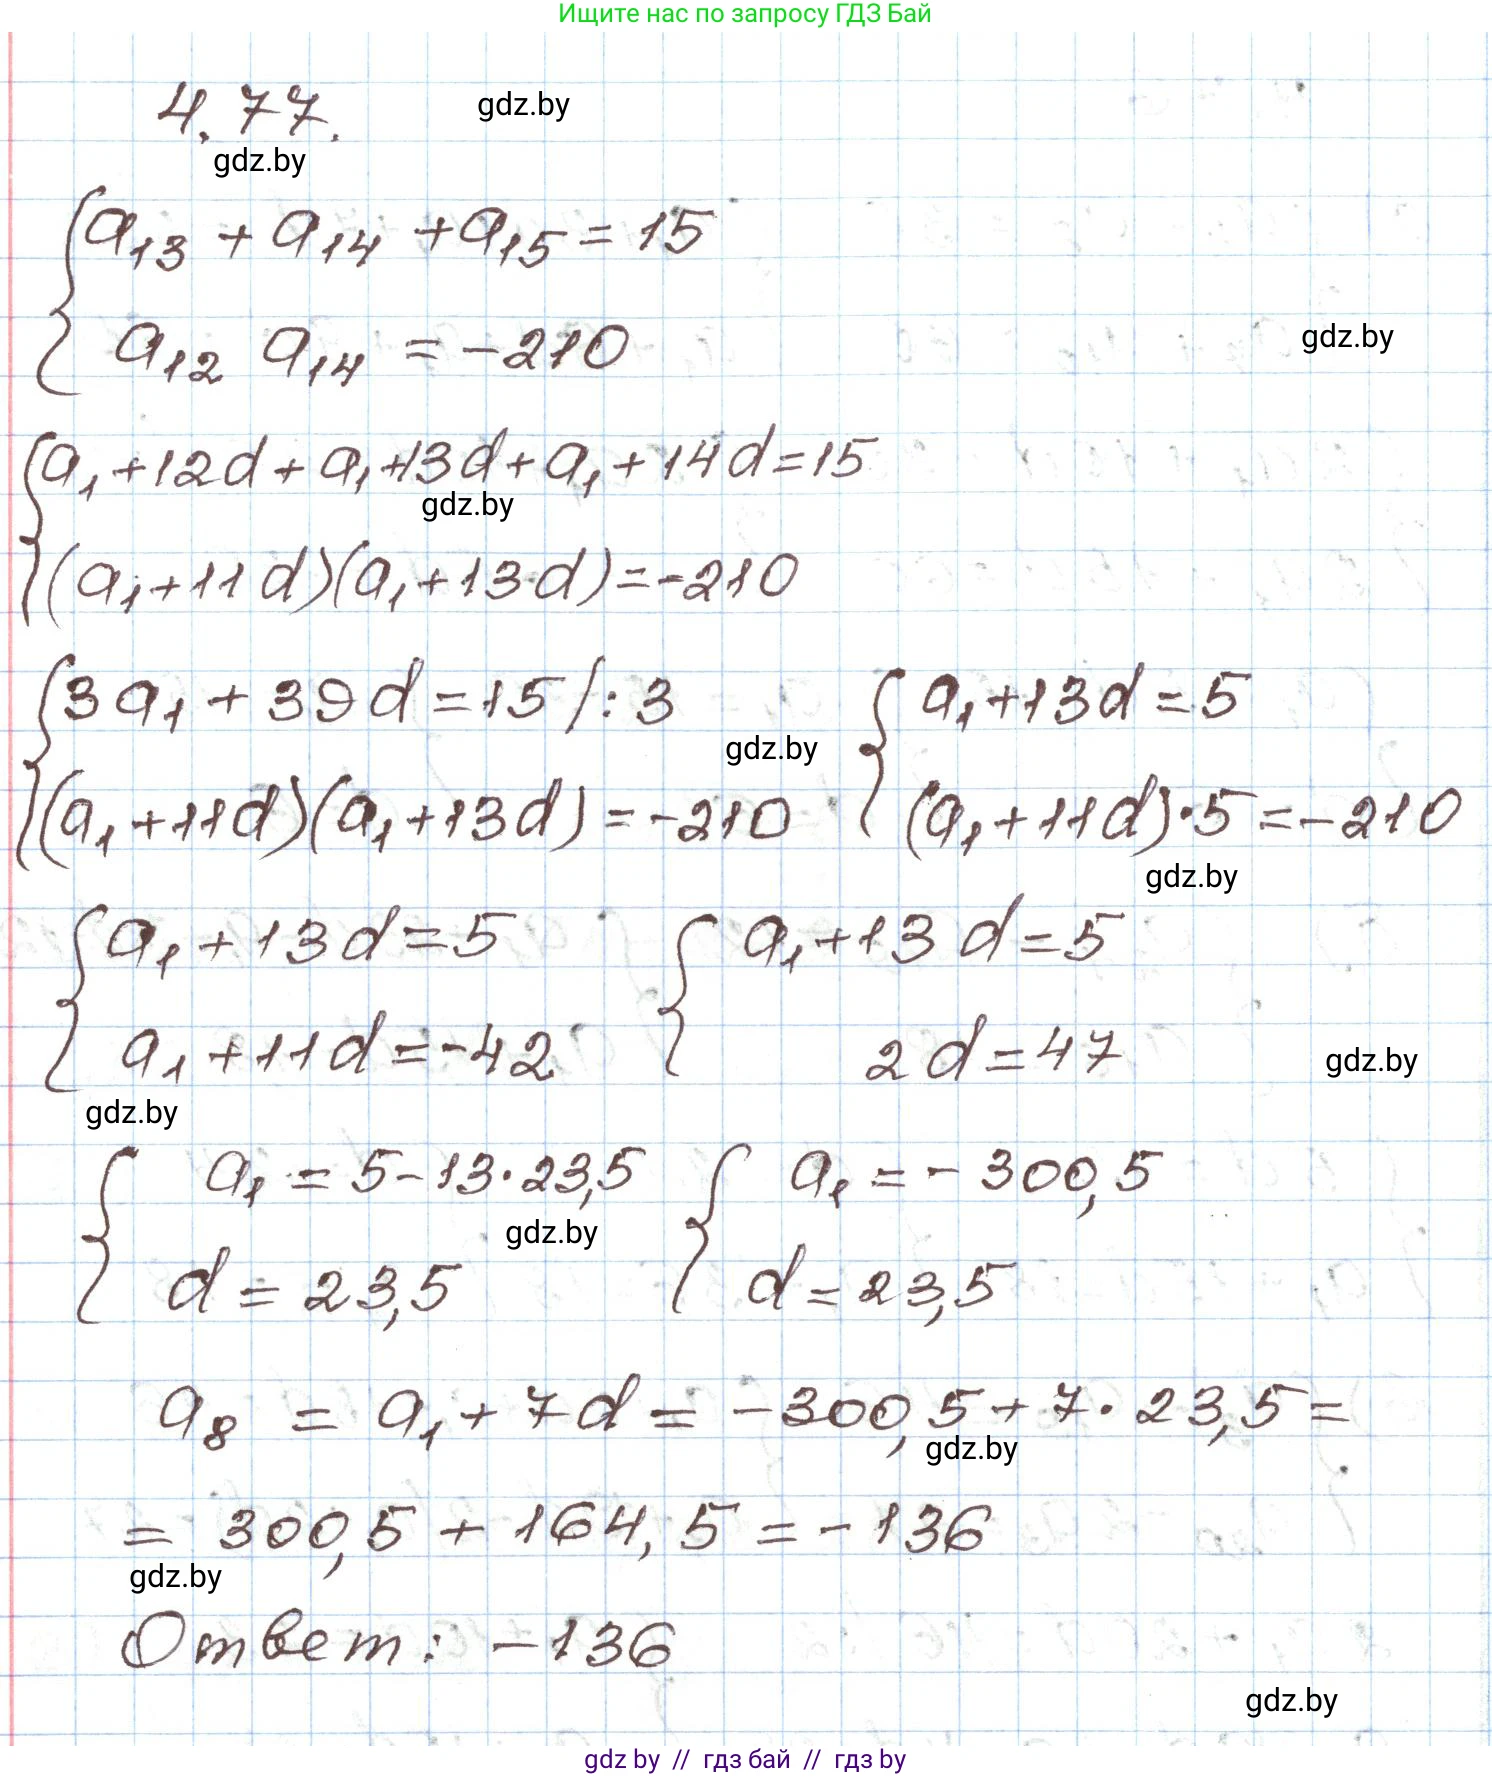 Ищите нас по запросу ГДЗ Бай
4.77.
gdz.by
gdz.by
a₁₃ + a₁₄ + a₁₅ = 15
a₁₂ a₁₄ = -210
gdz.by
a₁ + 12d + a₁ + 13d + a₁ + 14d = 15
gdz.by
(a₁ + 11d)(a₁ + 13d) = -210
3a₁ + 39d = 15 /:3 a₁ + 13d = 5
gdz.by
(a₁ + 11d)(a₁ + 13d) = -210 (a₁ + 11d)·5 = -210
gdz.by
a₁ + 13d = 5 a₁ + 13d = 5
a₁ + 11d = -42 2d = 47
gdz.by
gdz.by
a₁ = 5 - 13·23,5 a₁ = -300,5
gdz.by
d = 23,5 d = 23,5
a₈ = a₁ + 7d = -300,5 + 7·23,5 =
gdz.by
= 300,5 + 164,5 = -136
gdz.by
Ответ: -136
gdz.by
gdz by // гдз бай // гдз by